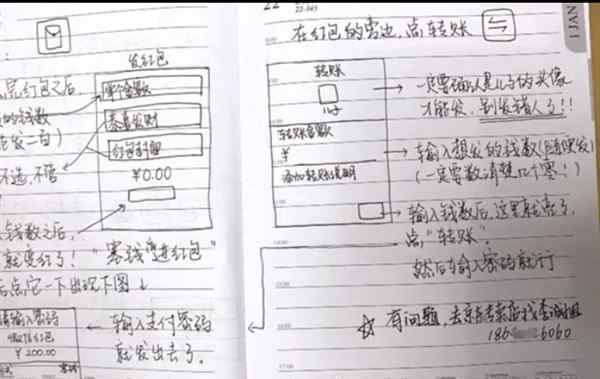 发红包
点完红包之后
单个金额
的钱数
恭喜发财
能发一百)
红包封面
不选,不管
¥0.00
钱数之后,
就变红了!
“塞钱进红包”
后点它一下出现下图↓
请输入密码
微信红包
¥200.00
← 输入支付密码
就发出去了。
22
22.365
JAN 1
在红包的旁边,点转账
转账
儿子
一定要确认是儿子的头像
才能发,别发错人了!!
转账金额
¥
添加转账说明
输入想发的钱数(随便发)
(一定要数清楚几个零!)
输入钱数后,这里就亮了,
点“转账”,
然后输入密码就行
☆ 有问题,去京东专卖店找
186 6060
17:00